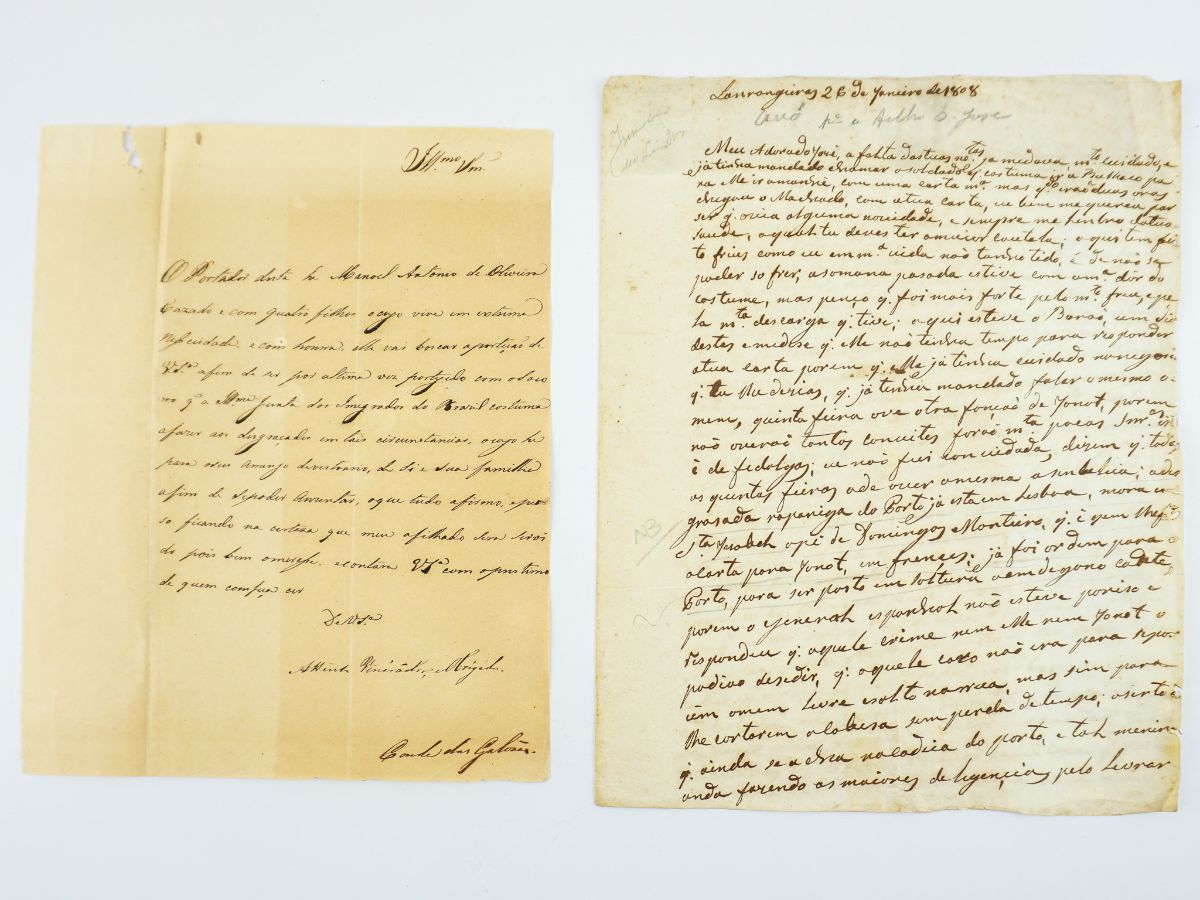 Illmo. Snr.
O Portador desta he Manoel Antonio de Oliveira
Cazado e com quatro filhos o cujo vive em extrema
Nesecidade, e com honra, elle vai boscar a portução de
VSª afim de ser por altima vez portejido com o
q̃ a Illma. Junta dos Imegrados do Brazil costuma
afazer aos desgraçados em tais circunstancias, o cujo he
para oseu Arranjo de si e sua familha
afim de Sepoder o que tudo afirmo,
ficando na certeza que meu afilhado sera
do pois bem omerese, e contára VSª com oprestimo
de quem comfeça ser
De VSª
Attento Venerador, e Obrigado
Conde das Galvêas
Lanrangeiras 26 de Janeiro de 1808
pª o Filho D. Jose
Meu Adorado José, a falta dastuas notas ja medava mto. cuidado, e
já tinha mandado chamar o soldado q. costuma ir a Bussaco pa
ra lhe ir amanhã, com uma carta mª. mas q.do erão duas oras
chegou o Machado, com atua carta, eu bem me queria par
ser q. ovia alguma novidade, e sempre me lembro datua
saude, aqual tu deves ter amaior cautela, aqui tem fei
to frios como eu em mª vida não tenho tido, e de não se
poder sofrer, asomana pasada estive com amª dôr do
costume, mas penço q. foi mais forte pelo mto. frio, e pe
la mta. descarga q. tive; aqui esteve o Barão, um dia
destes e medise q. lhe não tinha tempo para responder
atua carta porem q. lhe já tinha cuidado nonegocio
q. tu lhe dizias, q. já tinha mandado falar o mesmo o
mem, quinta feira ove otra fonção de Jonot, porem
não overão tantos convites forão mta. pocas Snrªs.
de fedolgas; eu não fui convidada, dizem q. todas
os quintas feiras ade aver amesma asenbleia; ades
grasada rapariga do Porto já esta em Lisboa, mora
opé de Domingos Monteiro, q. è quem lhe fes
acarta para Jonot, em frences; já foi ordem para o
Porto, para ser posto em soltura
porem o general espanhol não esteve poriso e
respondeu q. aquele crime nem lhe nem Jonot o
podião desedir, q. aquele cazo não era para sepor
um omem livre esolto narrua, mas sim para
lhe cortarem acabesa sem perda de tempo; o serto é
q. ainda se acha nacadêa do porto, e tal menina
anda fazendo as maiores delegencias pelo livrar
NB